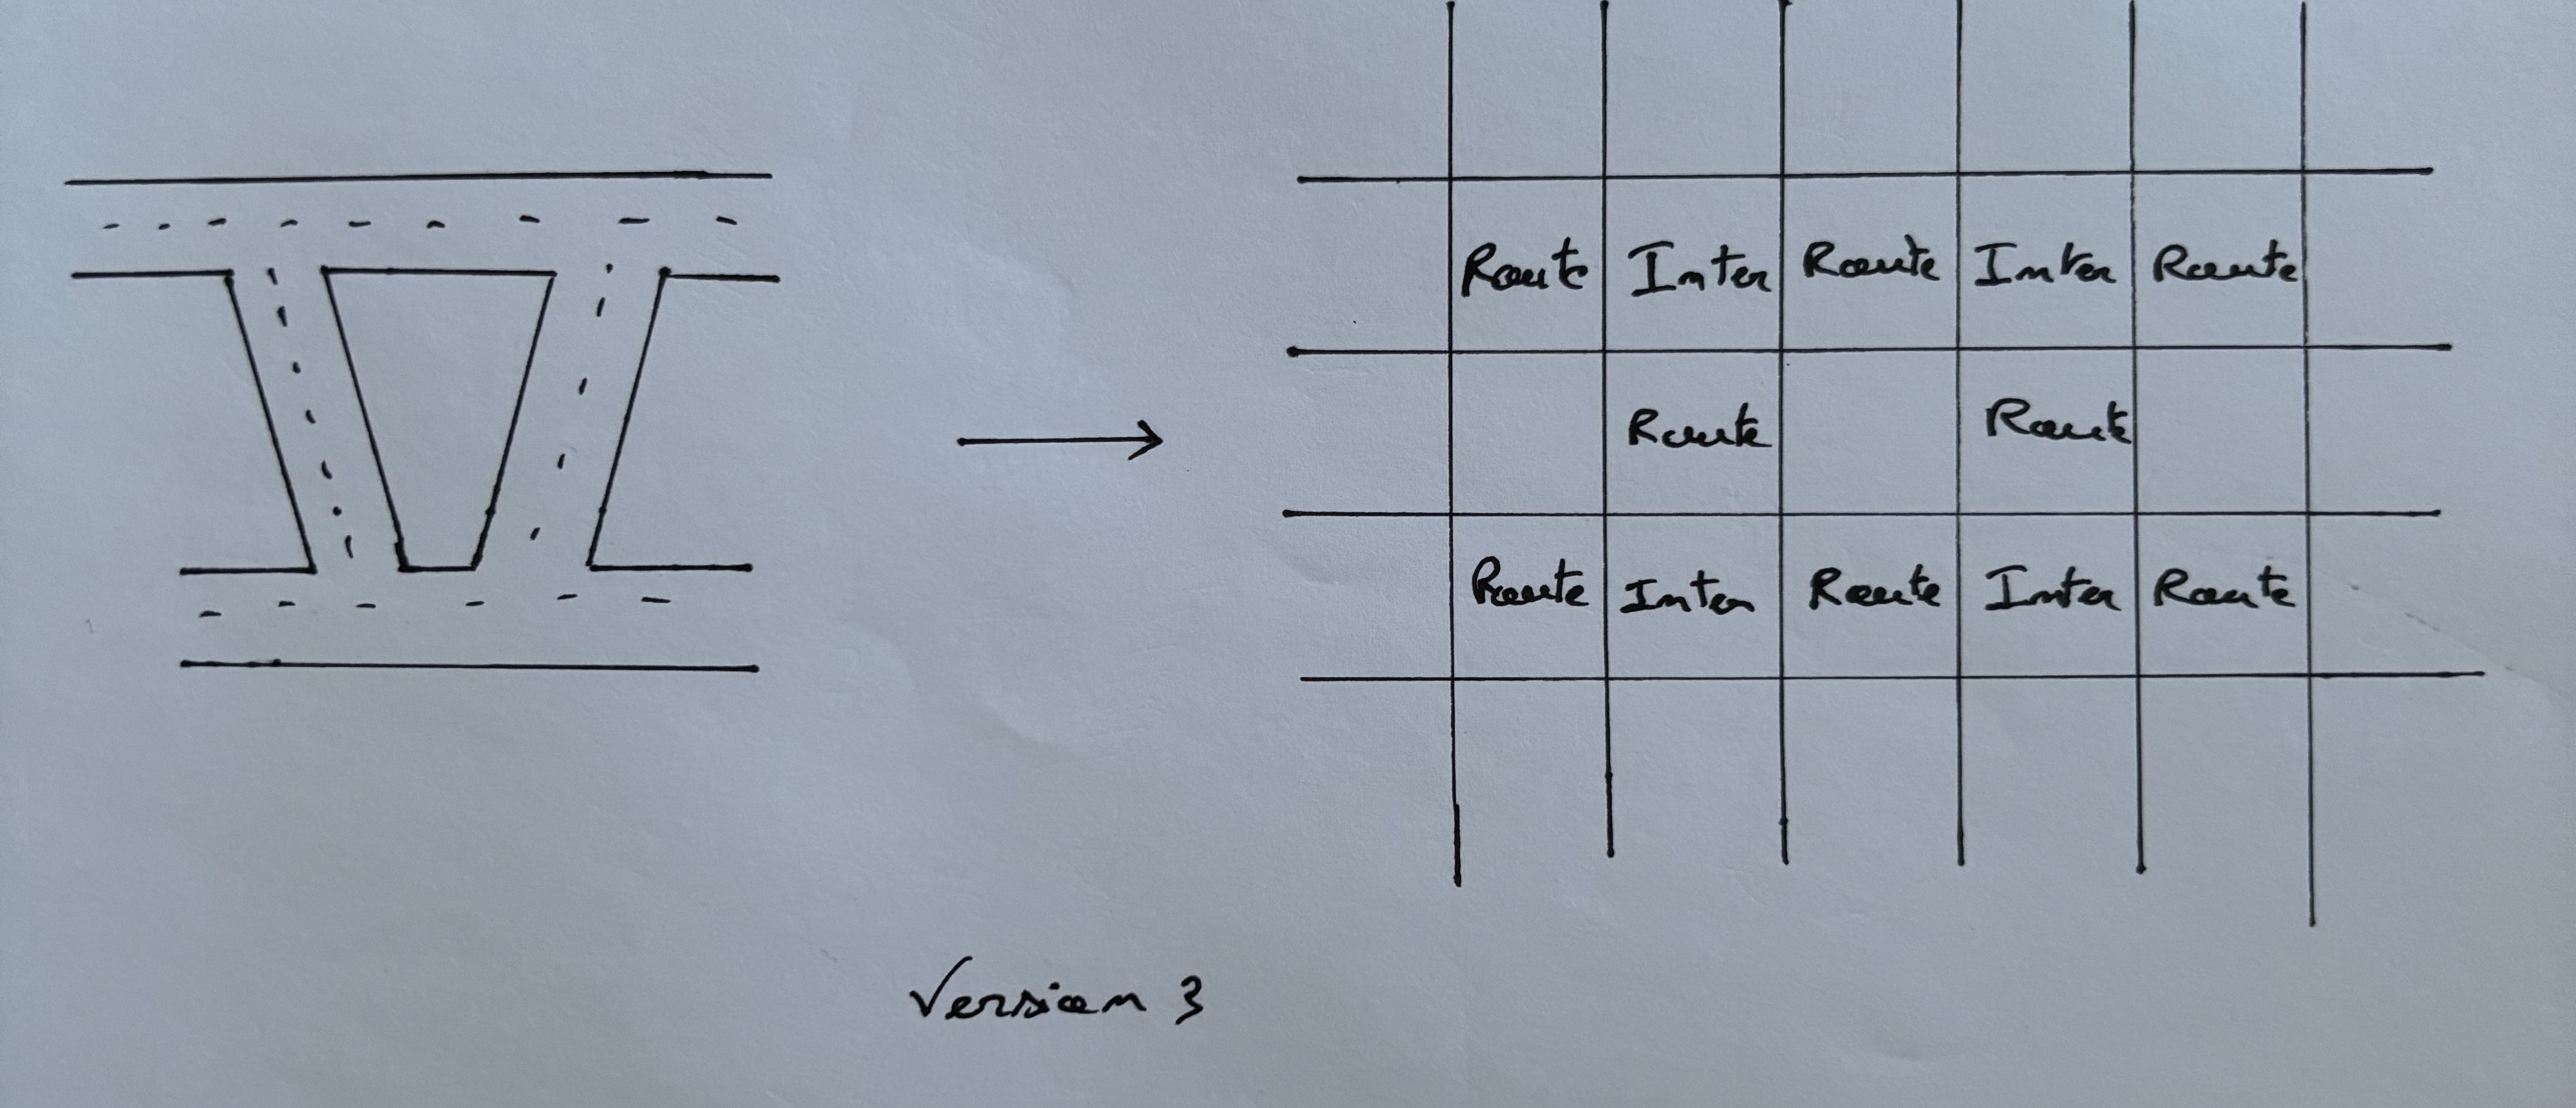 Route Inter Route Inter Route
Route Route
Route Inter Route Inter Route
Version 3